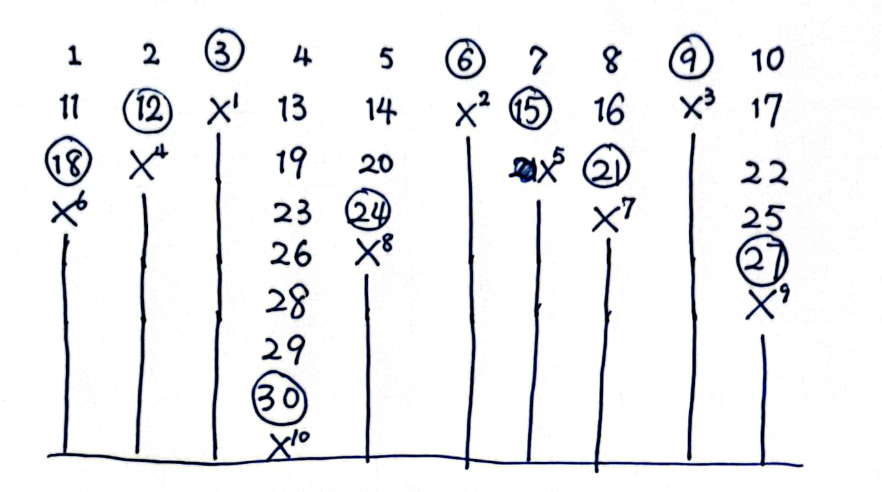 1 2 3 4 5 6 7 8 9 10
11 12 X¹ 13 14 X² 15 16 X³ 17
18 X⁴ 19 20 X⁵ 21 22
X⁶ 23 24 X⁷ 25
26 X⁸ 27
28 X⁹
29
30
X¹⁰